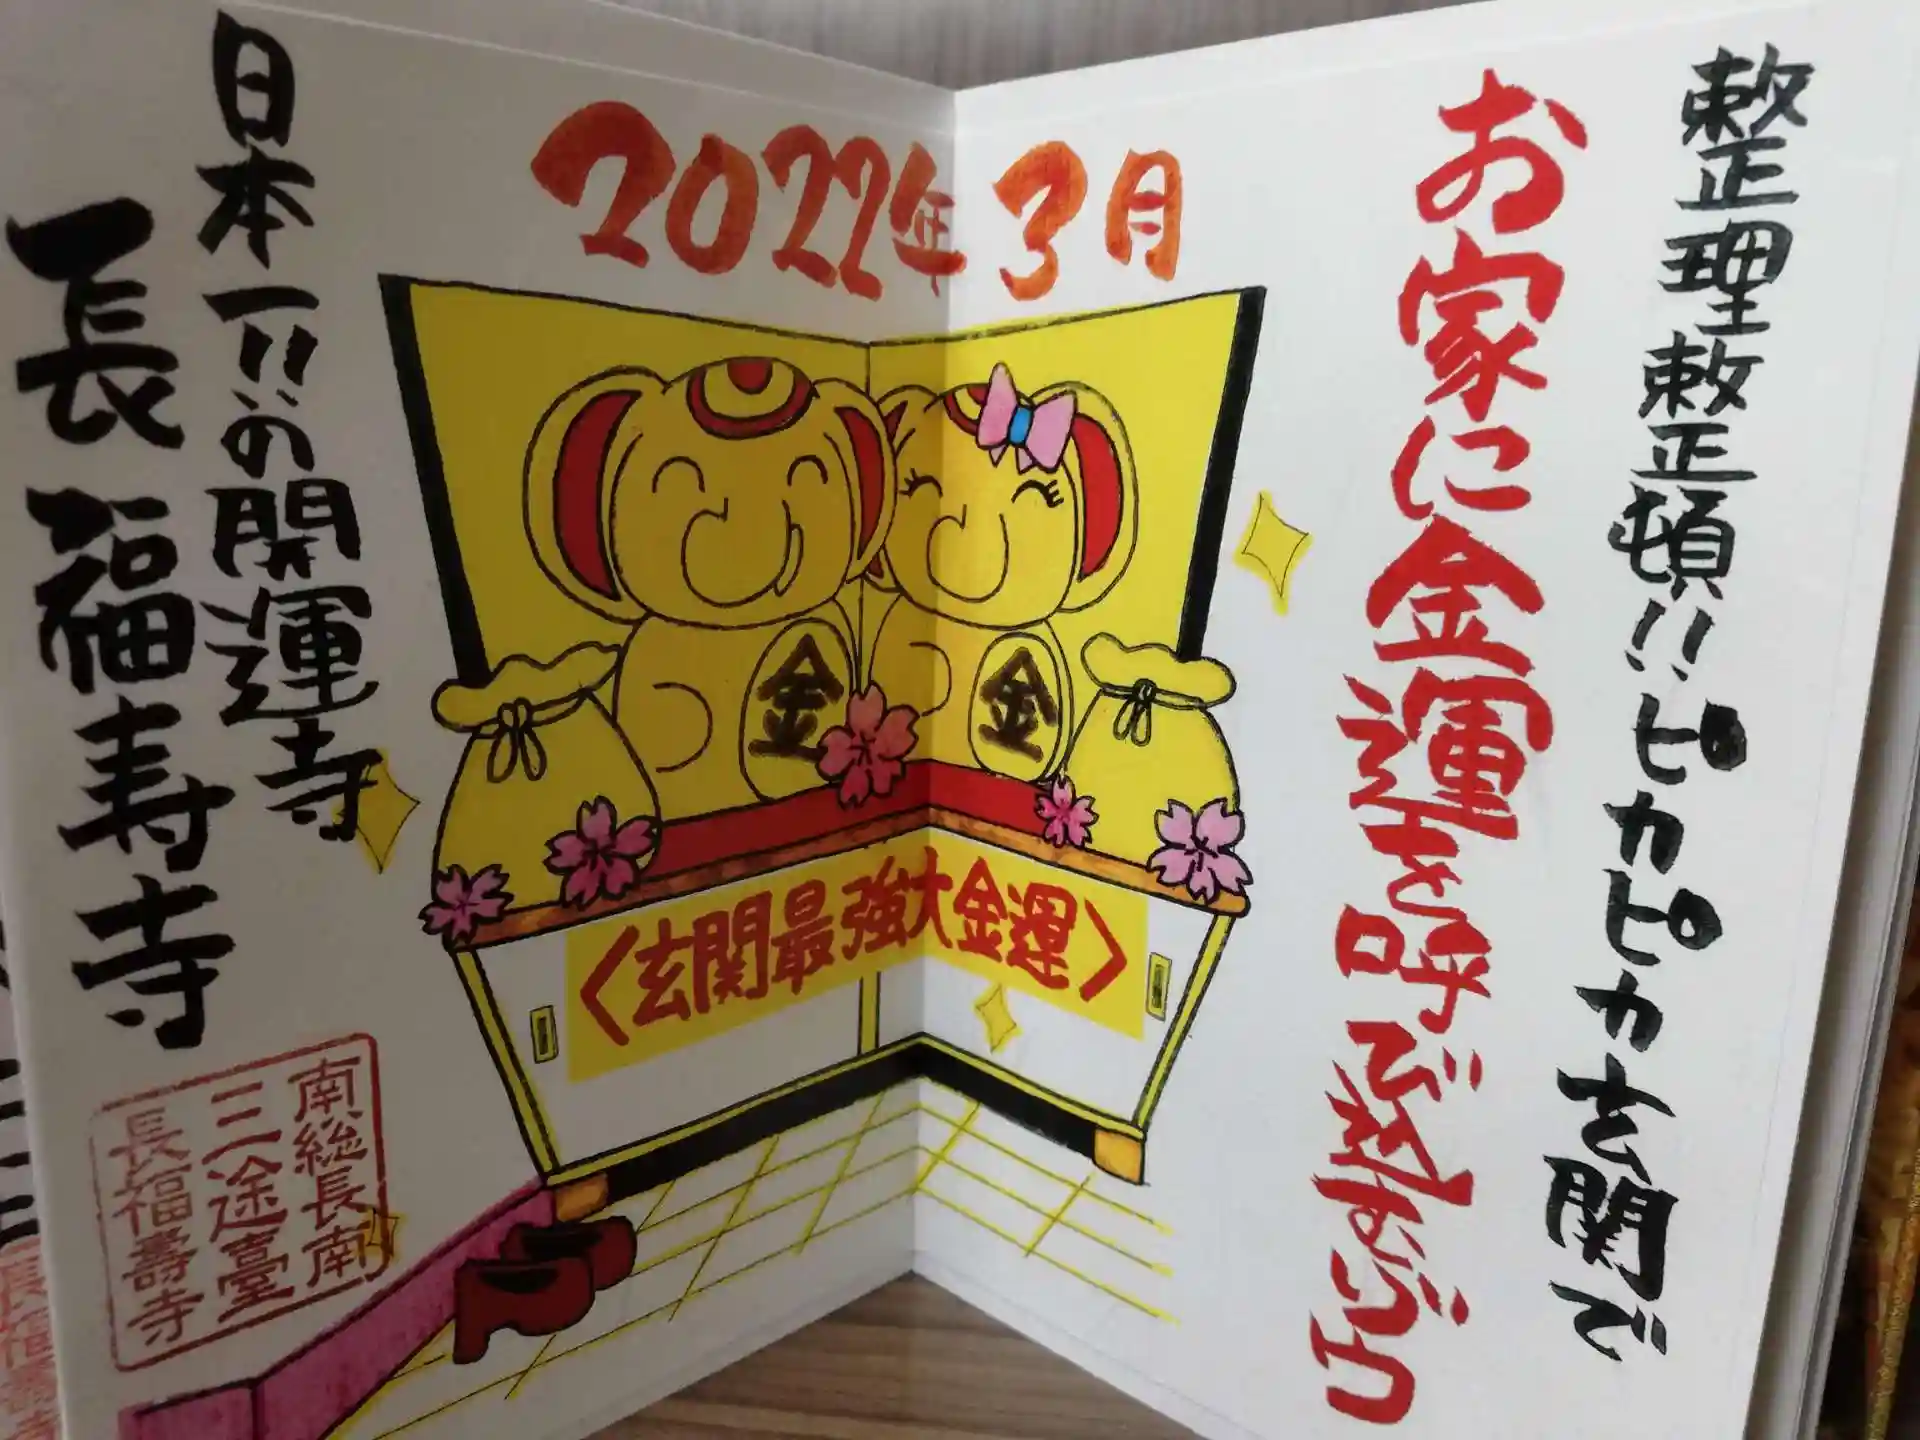 整理整頓!!ピカピカ玄関で
お家に金運を呼び込むゾウ
2022年3月
金
金
〈玄関最強大金運〉
日本一!!の開運寺
長福寿寺
南総長南
三途臺
長福壽寺